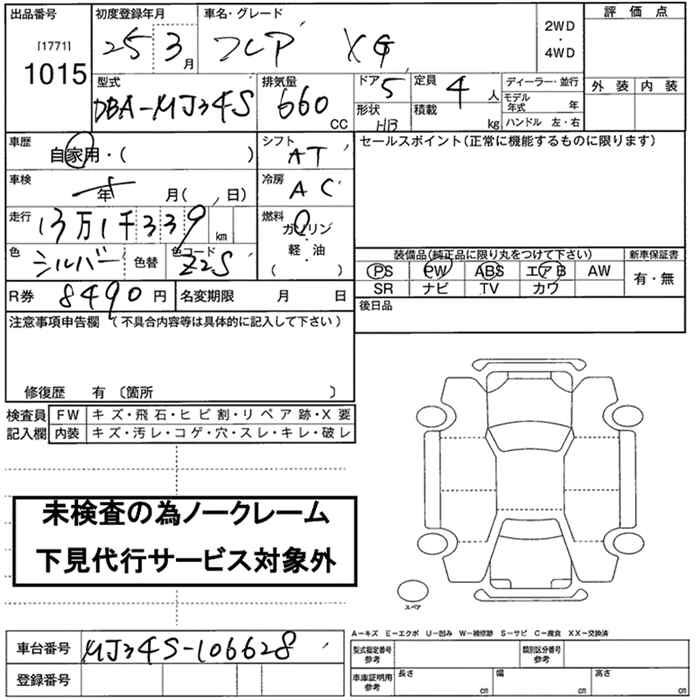 出品番号 初度登録年月 車名・グレード 評価点
[1771] 1015 25 3月 フレア XG 2WD・4WD
型式 排気量 ドア 定員 ディーラー・並行 外装 内装
DBA-MJ34S 660 CC 5 4人 モデル年式 年
形状 HB 積載 kg ハンドル 左・右
車歴 シフト セールスポイント(正常に機能するものに限ります)
自家用・( ) AT
車検 冷房
年 月( , 日) AC
走行 燃料
13万1千339 km ガソリン・軽・油
色 色コード
シルバー 色替 Z2S ( )
装備品(純正品に限り丸をつけて下さい) 新車保証書
PS PW ABS エアB AW 有・無
SR ナビ TV カワ
R券 8490円 名変期限 月 日 後日品
注意事項申告欄 (不具合内容等は具体的に記入して下さい)
修復歴 有 〔箇所 〕
検査員 FW キズ・飛石・ヒビ割・リペア跡・X要
記入欄 内装 キズ・汚レ・コゲ・穴・スレ・キレ・破レ
未検査の為ノークレーム
下見代行サービス対象外
スペア
A−キズ E−エクボ U−凹み W−補修跡 S−サビ C−腐食 XX−交換済
車台番号 MJ34S-106628 型式指定番号 参考 類別区分番号 参考
登録番号 車庫証明用 参考 長さ cm 幅 cm 高さ cm